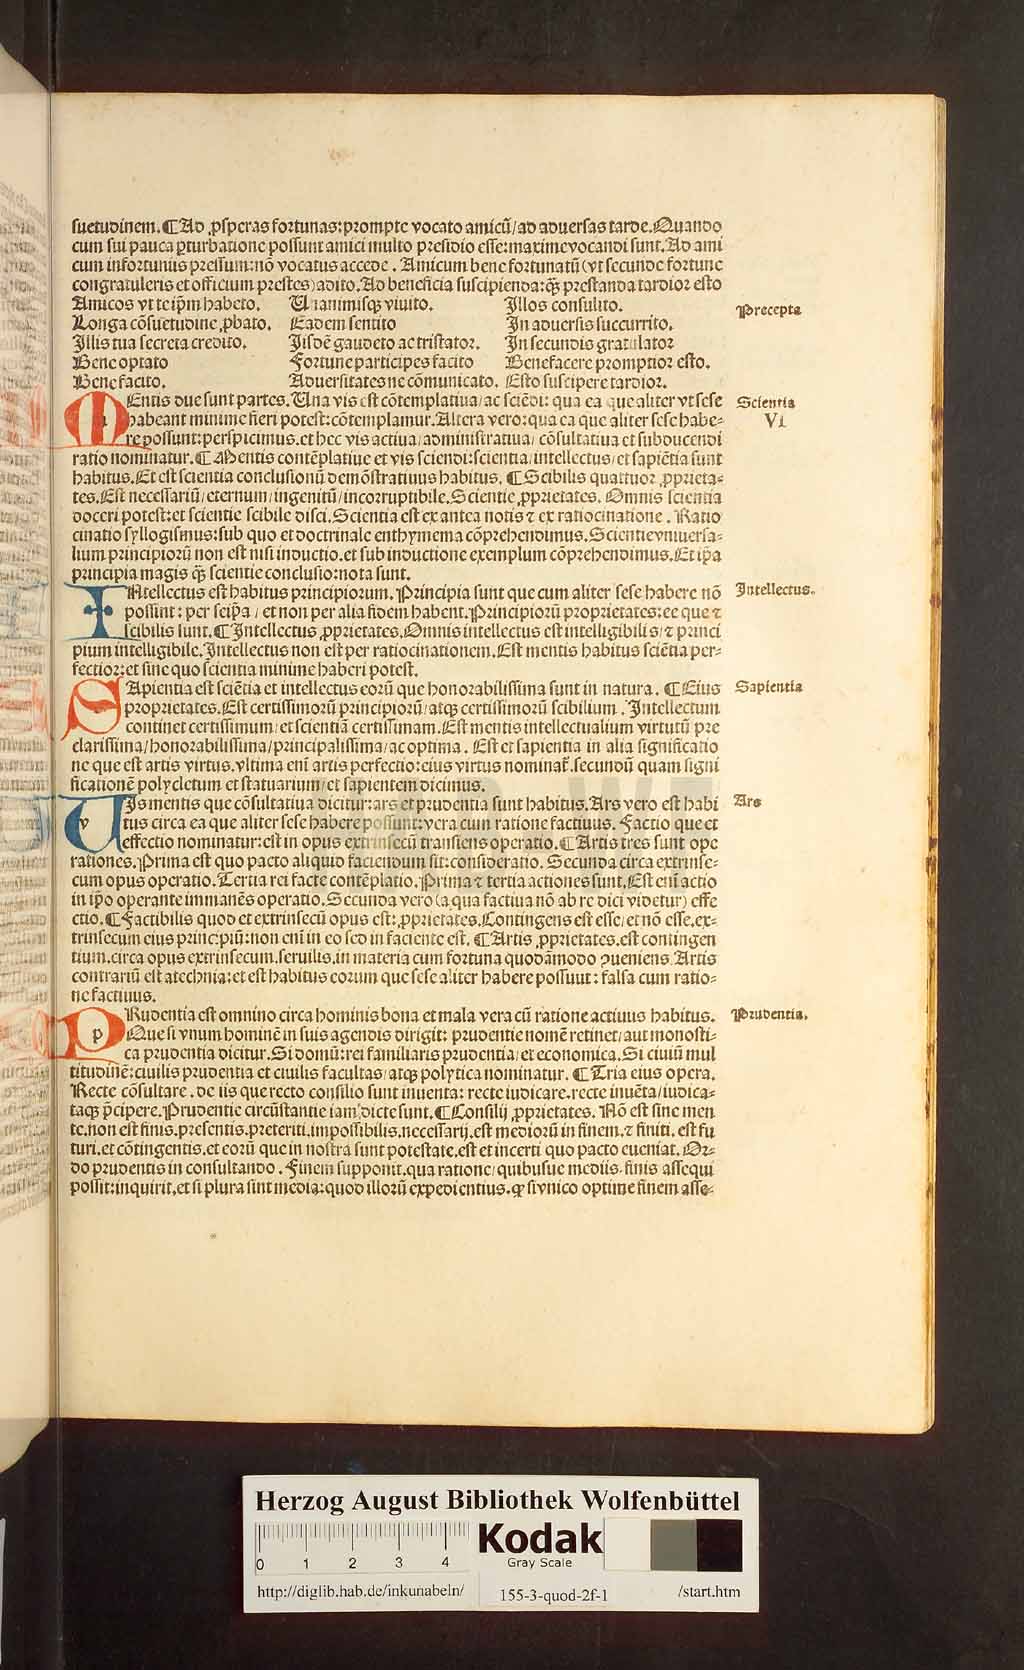 suetudinem. ¶ Ad ꝓsperas fortunas: prompte vocato amicū/ ad aduersas tarde. Quando
cum sui pauca ꝑturbatione possunt amici multo presidio esse: maxime vocandi sunt. Ad ami
cum infortuniis pressum: nō vocatus accede. Amicum bene fortunatū (vt secunde fortune
congratuleris et officium prestes) adito. Ad beneficia suscipienda: q̄ꝫ prestanda tardior esto
Amicos vt te ip̄m habeto. Unanimisqꝫ viuito. Illos consulito.
Precepta
Longa cōsuetudine ꝓbato. Eadem sentito In aduersis succurrito.
Illis tua secreta credito. Iisdē gaudeto ac tristator. In secundis gratulator
Bene optato Fortune participes facito Benefacere promptior esto.
Bene facito. Aduersitates ne cōmunicato. Esto suscipere tardior.
MEntis due sunt partes. Una vis est cōtemplatiua/ ac sciēdi: qua ea que aliter vt sese
Scientia
VI
habeant minime fieri potest: cōtemplamur. Altera vero: qua ea que aliter sese habe-
re possunt: perspicimus. et hec vis actiua/ administratiua/ cōsultatiua et subducendi
ratio nominatur. ¶ Mentis contēplatiue et vis sciendi: scientia/ intellectus/ et sapiētia sunt
habitus. Et est scientia conclusionū demōstratiuus habitus. ¶ Scibilis quattuor ꝓprieta-
tes. Est necessariū/ eternum/ ingenitū/ incorruptibile. Scientie ꝓprietates. Omnis scientia
doceri potest: et scientie scibile disci. Scientia est ex antea notis ⁊ ex ratiocinatione. Ratio
cinatio syllogismus: sub quo et doctrinale enthymema cōprehendimus. Scientie vniuersa-
lium principiorū non est nisi inductio. et sub inductione exemplum cōprehendimus. Et ip̄a
principia magis q̄ꝫ scientie conclusio: nota sunt.
INtellectus est habitus principiorum. Principia sunt que cum aliter sese habere nō
Intellectus.
possint: per seip̄a/ et non per alia fidem habent. Principiorū proprietates: ee que ⁊
scibilis sunt. ¶ Intellectus ꝓprietates. Omnis intellectus est intelligibilis/ ⁊ princi
pium intelligibile. Intellectus non est per ratiocinationem. Est mentis habitus sciētia per-
fectior: et sine quo scientia minime haberi potest.
SApientia est sciētia et intellectus eorū que honorabilissima sunt in natura. ¶ Eius
Sapientia
proprietates. Est certissimorū principiorū/ atqꝫ certissimorū scibilium. Intellectum
continet certissimum/ et scientiā certissimam. Est mentis intellectualium virtutū pre
clarissima/ honorabilissima/ principalissima/ ac optima. Est et sapientia in alia significatio
ne que est artis virtus. vltima enī artis perfectio: eius virtus nominat̄. secundū quam signi
ficationē polycletum et statuarium/ et sapientem dicimus.
UIs mentis que cōsultatiua dicitur: ars et prudentia sunt habitus. Ars vero est habi
Ars
tus circa ea que aliter sese habere possunt: vera cum ratione factiuus. Factio que et
effectio nominatur: est in opus extrinsecū transiens operatio. ¶ Artis tres sunt ope
rationes. Prima est quo pacto aliquid faciendum sit: consideratio. Secunda circa extrinse-
cum opus operatio. Tertia rei facte contēplatio. Prima ⁊ tertia actiones sunt. Est enī actio
in ip̄o operante immanēs operatio. Secunda vero (a qua factiua nō ab re dici videtur) effe
ctio. ¶ Factibilis quod et extrinsecū opus est: ꝓprietates. Contingens est esse/ et nō esse. ex-
trinsecum eius principiū: non enī in eo sed in faciente est. ¶ Artis ꝓprietates. est contingen
tium. circa opus extrinsecum. seruilis. in materia cum fortuna quodāmodo ꝯueniens. Artis
contrariū est atechnia: et est habitus eorum que sese aliter habere possuut: falsa cum ratio-
ne factiuus.
PRudentia est omnino circa hominis bona et mala vera cū ratione actiuus habitus.
Prudentia.
Que si vnum hominē in suis agendis dirigit: prudentie nomē retinet/ aut monosti-
ca prudentia dicitur. Si domū: rei familiaris prudentia/ et economica. Si ciuiū mul
titudinē: ciuilis prudentia et ciuilis facultas/ atqꝫ polytica nominatur. ¶ Tria eius opera.
Recte cōsultare. de iis que recto consilio sunt inuenta: recte iudicare. recte inuēta/ iudica-
taqꝫ p̄cipere. Prudentie circūstantie iam dicte sunt. ¶ Consilij ꝓprietates. Nō est sine men
te. non est finis. presentis. preteriti. impossibilis. necessarij. est mediorū in finem. ⁊ finiti. est fu
turi. et cōtingentis. et eorū que in nostra sunt potestate. est et incerti quo pacto eueniat. Or-
do prudentis in consultando. Finem supponit. qua ratione/ quibusue mediis. finis assequi
possit: inquirit. et si plura sint media: quod illorū expedientius. ꝙ si vnico optime finem asse-
Herzog August Bibliothek Wolfenbüttel
0 1 2 3 4
Kodak
Gray Scale
http://diglib.hab.de/inkunabeln/ 155-3-quod-2f-1 /start.htm